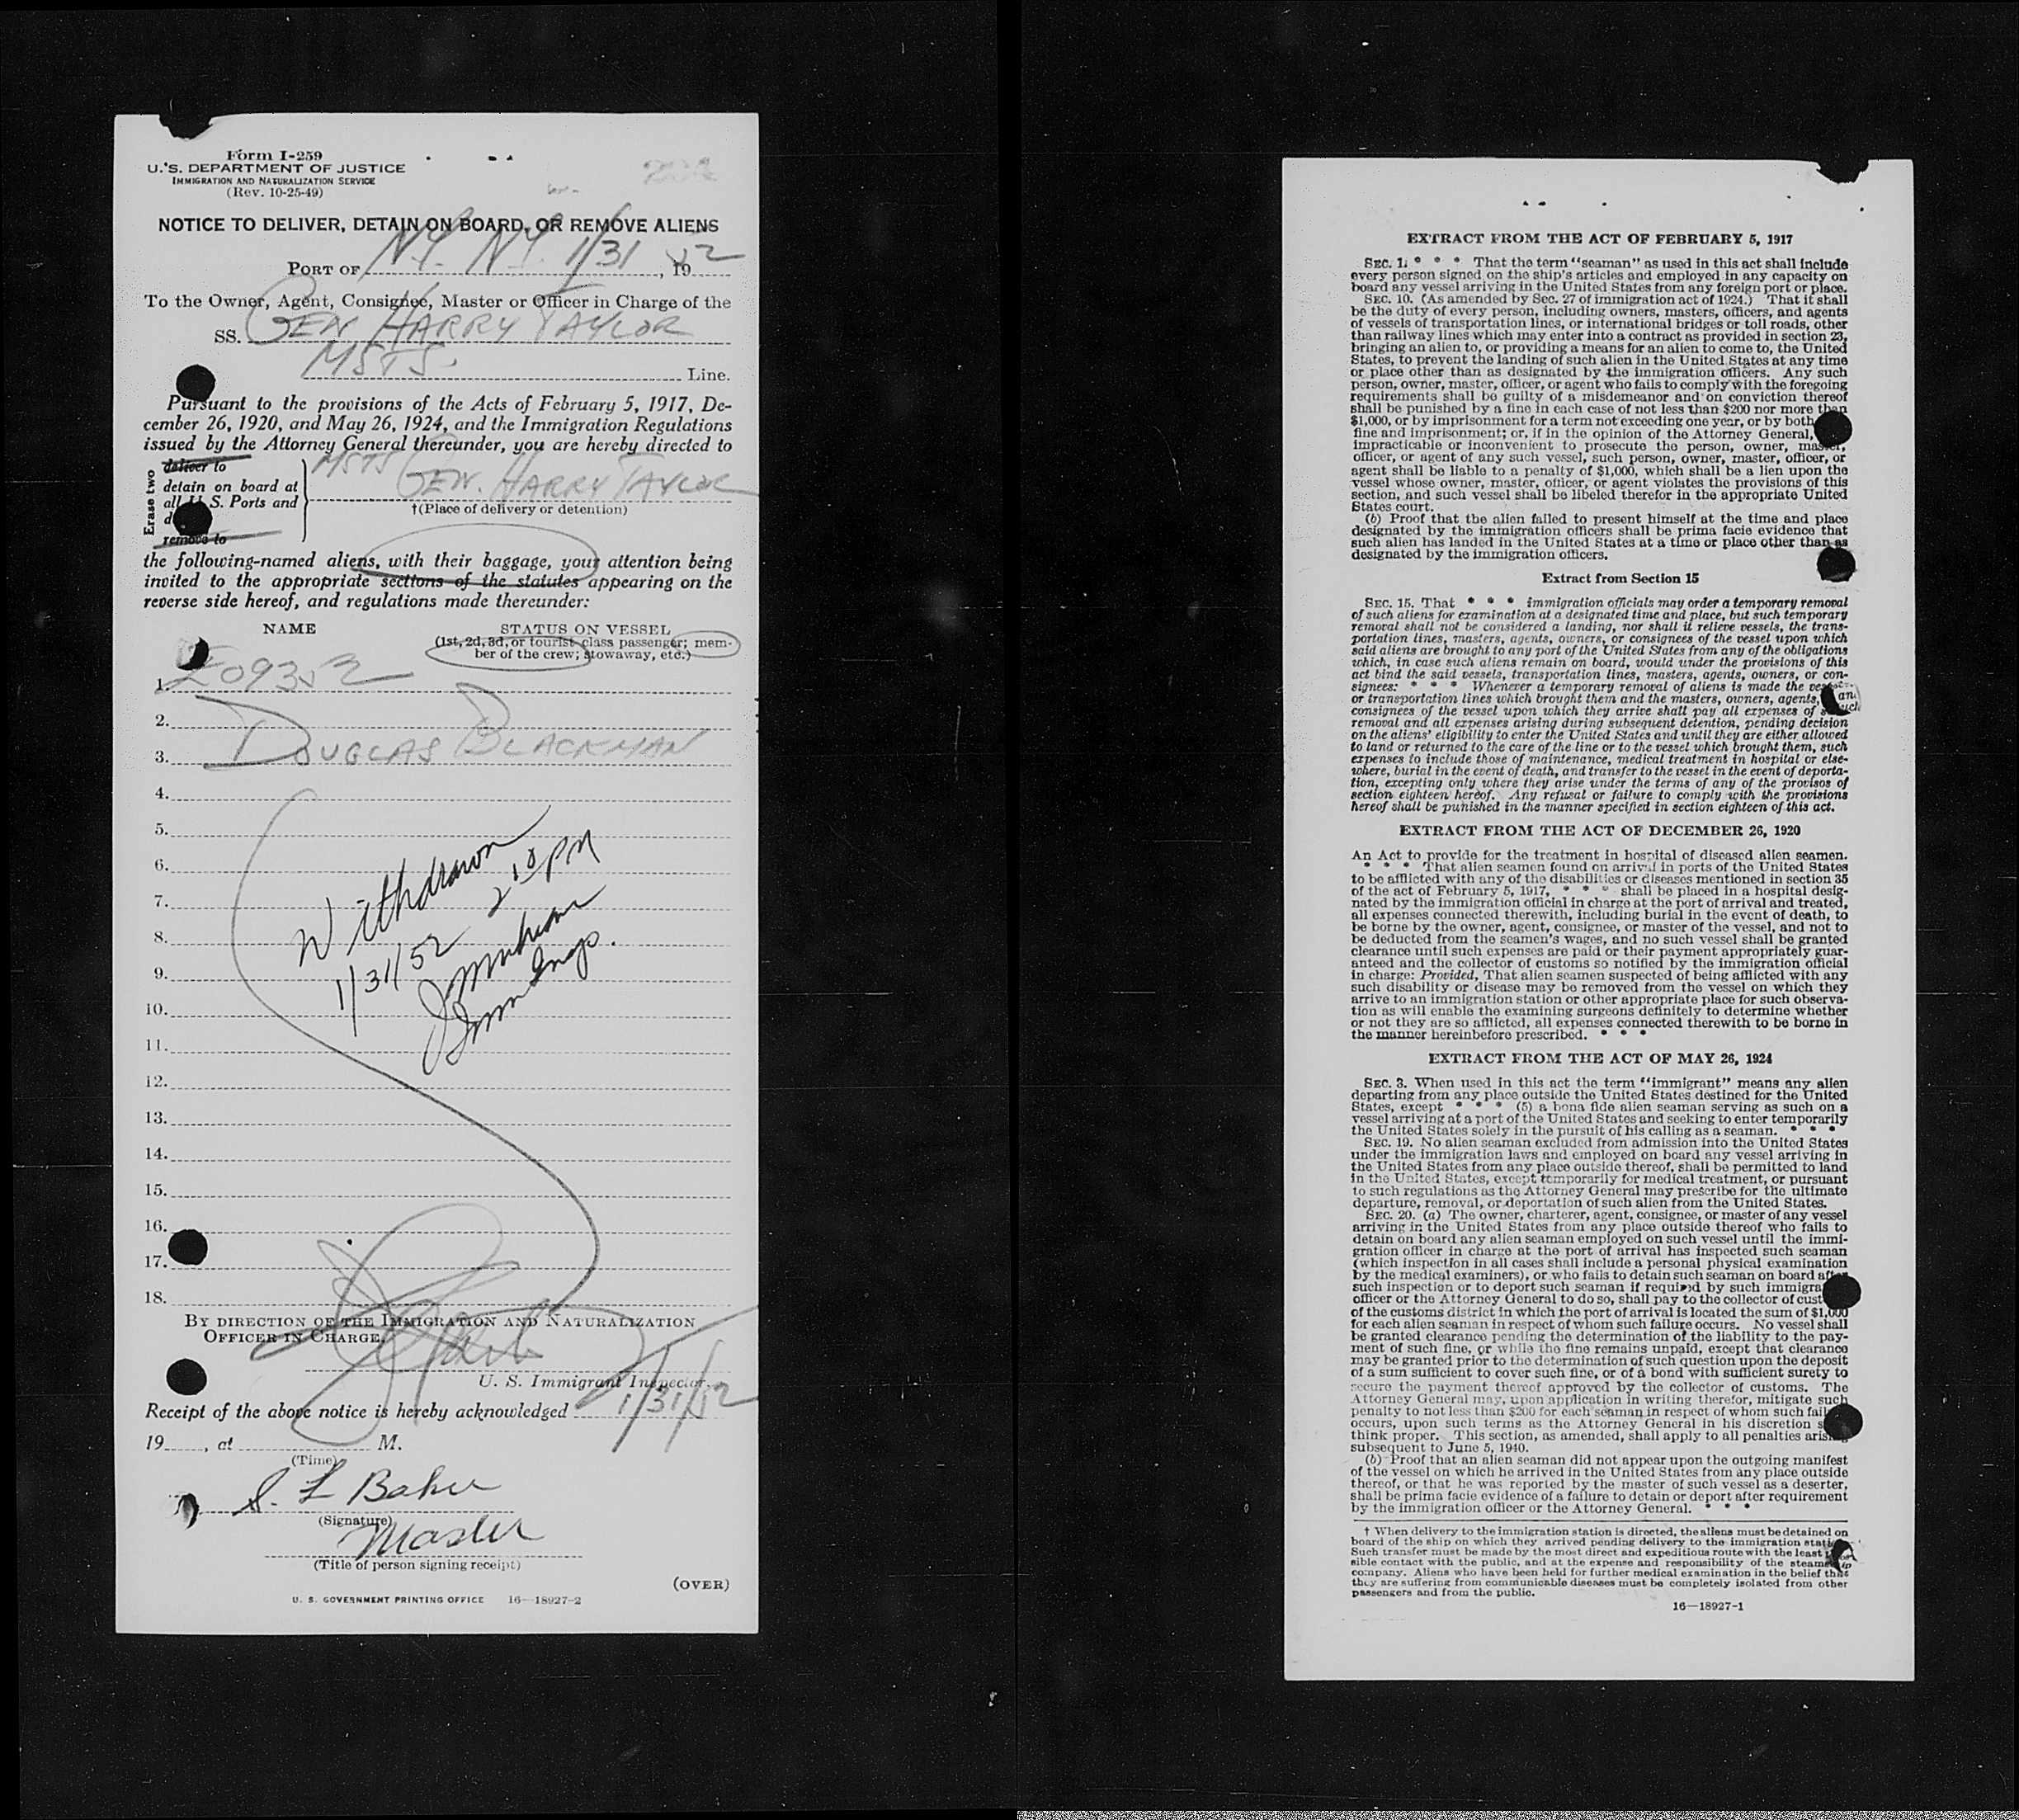 Form I-259
U. S. DEPARTMENT OF JUSTICE
IMMIGRATION AND NATURALIZATION SERVICE
(Rev. 10-25-49)
NOTICE TO DELIVER, DETAIN ON BOARD, OR REMOVE ALIENS
PORT OF N.Y. N.Y. 1/31, 1952
To the Owner, Agent, Consignee, Master or Officer in Charge of the
SS. GEN HARRY TAYLOR
MSTS. Line.
Pursuant to the provisions of the Acts of February 5, 1917, De-
cember 26, 1920, and May 26, 1924, and the Immigration Regulations
issued by the Attorney General thereunder, you are hereby directed to
Erase two
deliver to
detain on board at
all U. S. Ports and
remove to
MSTS GEN. HARRY TAYLOR
†(Place of delivery or detention)
the following-named aliens, with their baggage, your attention being
invited to the appropriate sections of the statutes appearing on the
reverse side hereof, and regulations made thereunder:
NAME
STATUS ON VESSEL
(1st, 2d, 3d, or tourist class passenger; mem-
ber of the crew; stowaway, etc.)
1.
2.
3. DOUGLAS BLACKMAN
4.
5.
6.
7.
8.
9.
10.
11.
12.
13.
14.
15.
16.
17.
18.
Withdrawn
1/31/52 2 10 PM
BY DIRECTION OF THE IMMIGRATION AND NATURALIZATION
OFFICER IN CHARGE.
U. S. Immigrant Inspector.
Receipt of the above notice is hereby acknowledged 1/31/52
19, at M.
(Time)
S. L Baker
(Signature)
Master
(Title of person signing receipt)
(OVER)
U. S. GOVERNMENT PRINTING OFFICE 16—18927-2
EXTRACT FROM THE ACT OF FEBRUARY 5, 1917
SEC. 1. * * * That the term "seaman" as used in this act shall include
every person signed on the ship's articles and employed in any capacity on
board any vessel arriving in the United States from any foreign port or place.
SEC. 10. (As amended by Sec. 27 of immigration act of 1924.) That it shall
be the duty of every person, including owners, masters, officers, and agents
of vessels of transportation lines, or international bridges or toll roads, other
than railway lines which may enter into a contract as provided in section 23,
bringing an alien to, or providing a means for an alien to come to, the United
States, to prevent the landing of such alien in the United States at any time
or place other than as designated by the immigration officers. Any such
person, owner, master, officer, or agent who fails to comply with the foregoing
requirements shall be guilty of a misdemeanor and on conviction thereof
shall be punished by a fine in each case of not less than $200 nor more than
$1,000, or by imprisonment for a term not exceeding one year, or by both
fine and imprisonment; or, if in the opinion of the Attorney General,
impracticable or inconvenient to prosecute the person, owner, master,
officer, or agent of any such vessel, such person, owner, master, officer, or
agent shall be liable to a penalty of $1,000, which shall be a lien upon the
vessel whose owner, master, officer, or agent violates the provisions of this
section, and such vessel shall be libeled therefor in the appropriate United
States court.
(b) Proof that the alien failed to present himself at the time and place
designated by the immigration officers shall be prima facie evidence that
such alien has landed in the United States at a time or place other than as
designated by the immigration officers.
Extract from Section 15
SEC. 15. That * * * immigration officials may order a temporary removal
of such aliens for examination at a designated time and place, but such temporary
removal shall not be considered a landing, nor shall it relieve vessels, the trans-
portation lines, masters, agents, owners, or consignees of the vessel upon which
said aliens are brought to any port of the United States from any of the obligations
which, in case such aliens remain on board, would under the provisions of this
act bind the said vessels, transportation lines, masters, agents, owners, or con-
signees: * * * Whenever a temporary removal of aliens is made the vessels
or transportation lines which brought them and the masters, owners, agents, and
consignees of the vessel upon which they arrive shall pay all expenses of such
removal and all expenses arising during subsequent detention, pending decision
on the aliens' eligibility to enter the United States and until they are either allowed
to land or returned to the care of the line or to the vessel which brought them, such
expenses to include those of maintenance, medical treatment in hospital or else-
where, burial in the event of death, and transfer to the vessel in the event of deporta-
tion, excepting only where they arise under the terms of any of the provisos of
section eighteen hereof. Any refusal or failure to comply with the provisions
hereof shall be punished in the manner specified in section eighteen of this act.
EXTRACT FROM THE ACT OF DECEMBER 26, 1920
An Act to provide for the treatment in hospital of diseased alien seamen.
* * * That alien seamen found on arrival in ports of the United States
to be afflicted with any of the disabilities or diseases mentioned in section 35
of the act of February 5, 1917, * * * shall be placed in a hospital desig-
nated by the immigration official in charge at the port of arrival and treated,
all expenses connected therewith, including burial in the event of death, to
be borne by the owner, agent, consignee, or master of the vessel, and not to
be deducted from the seamen's wages, and no such vessel shall be granted
clearance until such expenses are paid or their payment appropriately guar-
anteed and the collector of customs so notified by the immigration official
in charge: Provided, That alien seamen suspected of being afflicted with any
such disability or disease may be removed from the vessel on which they
arrive to an immigration station or other appropriate place for such observa-
tion as will enable the examining surgeons definitely to determine whether
or not they are so afflicted, all expenses connected therewith to be borne in
the manner hereinbefore prescribed. * * *
EXTRACT FROM THE ACT OF MAY 26, 1924
SEC. 3. When used in this act the term "immigrant" means any alien
departing from any place outside the United States destined for the United
States, except * * * (5) a bona fide alien seaman serving as such on a
vessel arriving at a port of the United States and seeking to enter temporarily
the United States solely in the pursuit of his calling as a seaman. * * *
SEC. 19. No alien seaman excluded from admission into the United States
under the immigration laws and employed on board any vessel arriving in
the United States from any place outside thereof, shall be permitted to land
in the United States, except temporarily for medical treatment, or pursuant
to such regulations as the Attorney General may prescribe for the ultimate
departure, removal, or deportation of such alien from the United States.
SEC. 20. (a) The owner, charterer, agent, consignee, or master of any vessel
arriving in the United States from any place outside thereof who fails to
detain on board any alien seaman employed on such vessel until the immi-
gration officer in charge at the port of arrival has inspected such seaman
(which inspection in all cases shall include a personal physical examination
by the medical examiners), or who fails to detain such seaman on board after
such inspection or to deport such seaman if required by such immigra
officer or the Attorney General to do so, shall pay to the collector of cust
of the customs district in which the port of arrival is located the sum of $1,000
for each alien seaman in respect of whom such failure occurs. No vessel shall
be granted clearance pending the determination of the liability to the pay-
ment of such fine, or while the fine remains unpaid, except that clearance
may be granted prior to the determination of such question upon the deposit
of a sum sufficient to cover such fine, or of a bond with sufficient surety to
secure the payment thereof approved by the collector of customs. The
Attorney General may, upon application in writing therefor, mitigate such
penalty to not less than $200 for each seaman in respect of whom such fail
occurs, upon such terms as the Attorney General in his discretion s
think proper. This section, as amended, shall apply to all penalties arising
subsequent to June 5, 1940.
(b) Proof that an alien seaman did not appear upon the outgoing manifest
of the vessel on which he arrived in the United States from any place outside
thereof, or that he was reported by the master of such vessel as a deserter,
shall be prima facie evidence of a failure to detain or deport after requirement
by the immigration officer or the Attorney General. * * *
† When delivery to the immigration station is directed, the aliens must be detained on
board of the ship on which they arrived pending delivery to the immigration station.
Such transfer must be made by the most direct and expeditious route with the least
sible contact with the public, and at the expense and responsibility of the steamship
company. Aliens who have been held for further medical examination in the belief that
they are suffering from communicable diseases must be completely isolated from other
passengers and from the public.
16—18927-1